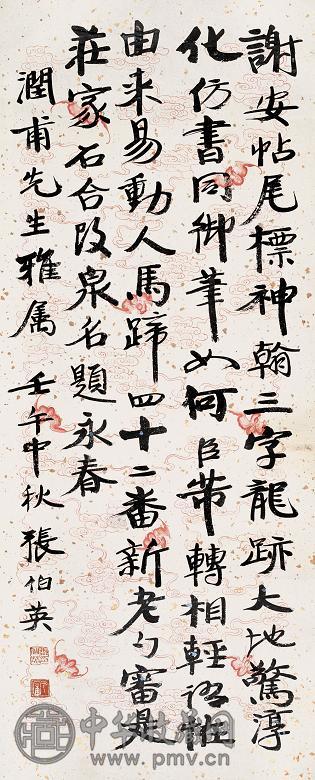 謝安帖尾標神翰二字龍跡大地驚淳
化仿書同御筆如何臣帶轉相輕
由来易動人馬蹄四十二番新老勾審是
莊家石合改泉名題永春
潤甫先生雅属 壬午中秋 張伯英
中华收藏网
www.pmv.cn